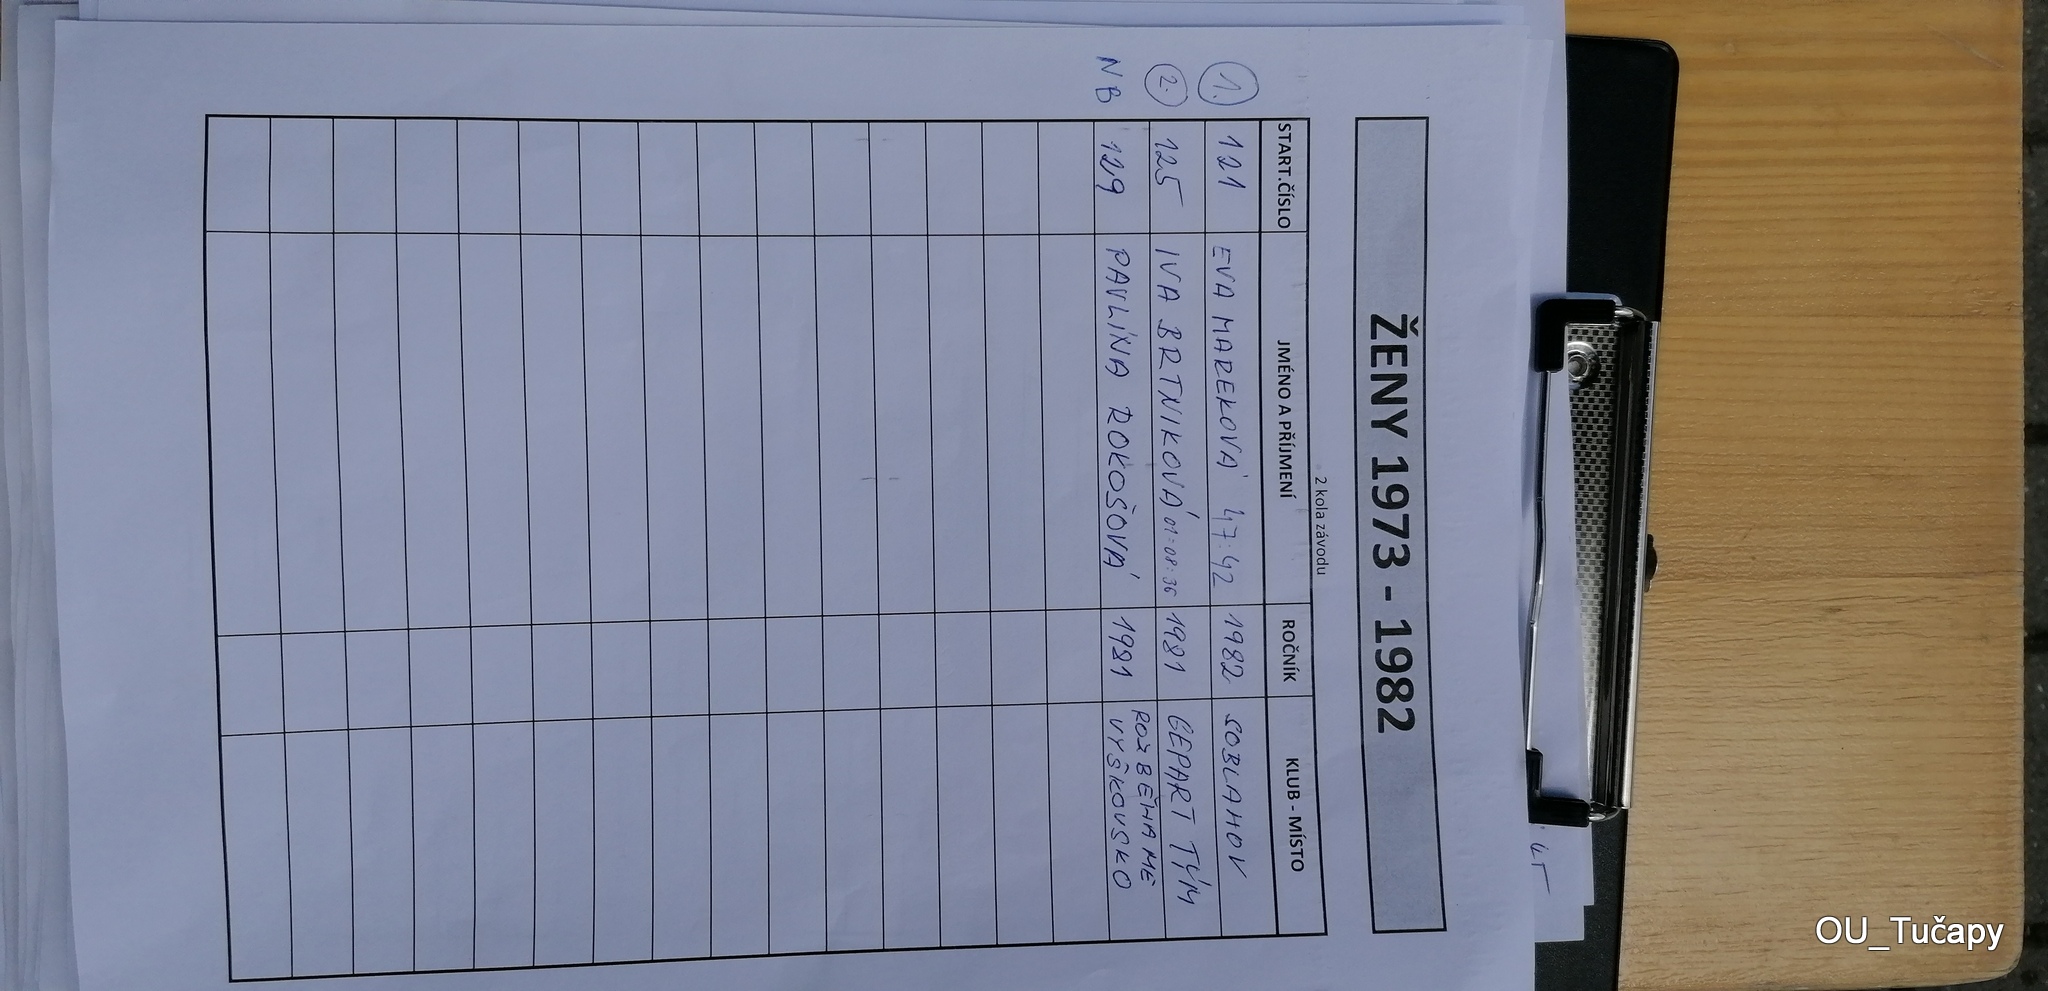 ŽENY 1973 - 1982
2 kola závodu
START.ČÍSLO JMÉNO A PŘÍJMENÍ ROČNÍK KLUB - MÍSTO
1. 121 EVA MAREKOVÁ 47:42 1982 SOBLAHOV
2. 125 IVA BRTNIKOVÁ 01:08:36 1981 GEPART TÝM
NB 129 PAVLÍNA ROKOŠOVÁ 1981 ROZBĚHAME
VYŠKOVSKO
OU_Tučapy